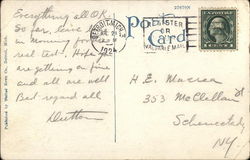 Everything all O.K.
So far, leave
in Morning for
real test. Hope
are getting on fine
and all are well
Best regard all
Dutton
Post
Card
DETROIT, MICH.
1924
REGISTER
OR
VALUABLE MAIL
H.E. Macrea
353 McClellan St
Schenectady
NY